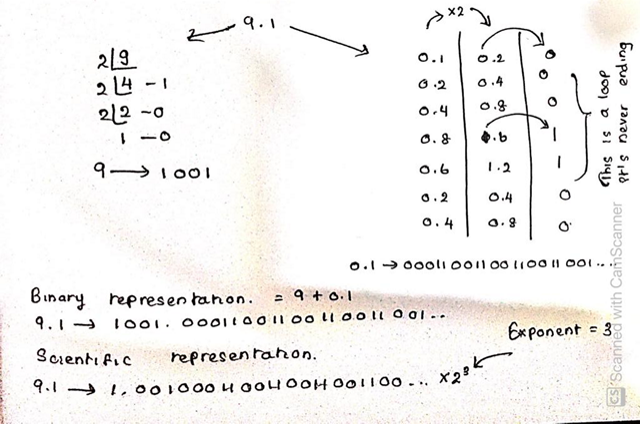 2 9.1
×2
2 9
2 4 - 1
2 2 - 0
1 - 0
9 → 1001
0.1 0.2 0
0.2 0.4 0
0.4 0.8 0
0.8 .6 1
0.6 1.2 1
0.2 0.4 0
0.4 0.8 0
This is a loop
it's never ending
0.1 → 00011001100110011001...
Binary representation. = 9 + 0.1
9.1 → 1001.00011001100110011001...
Exponent = 3
Scientific representation.
9.1 → 1.0010001100110011001100... ×2³
CS Scanned with CamScanner